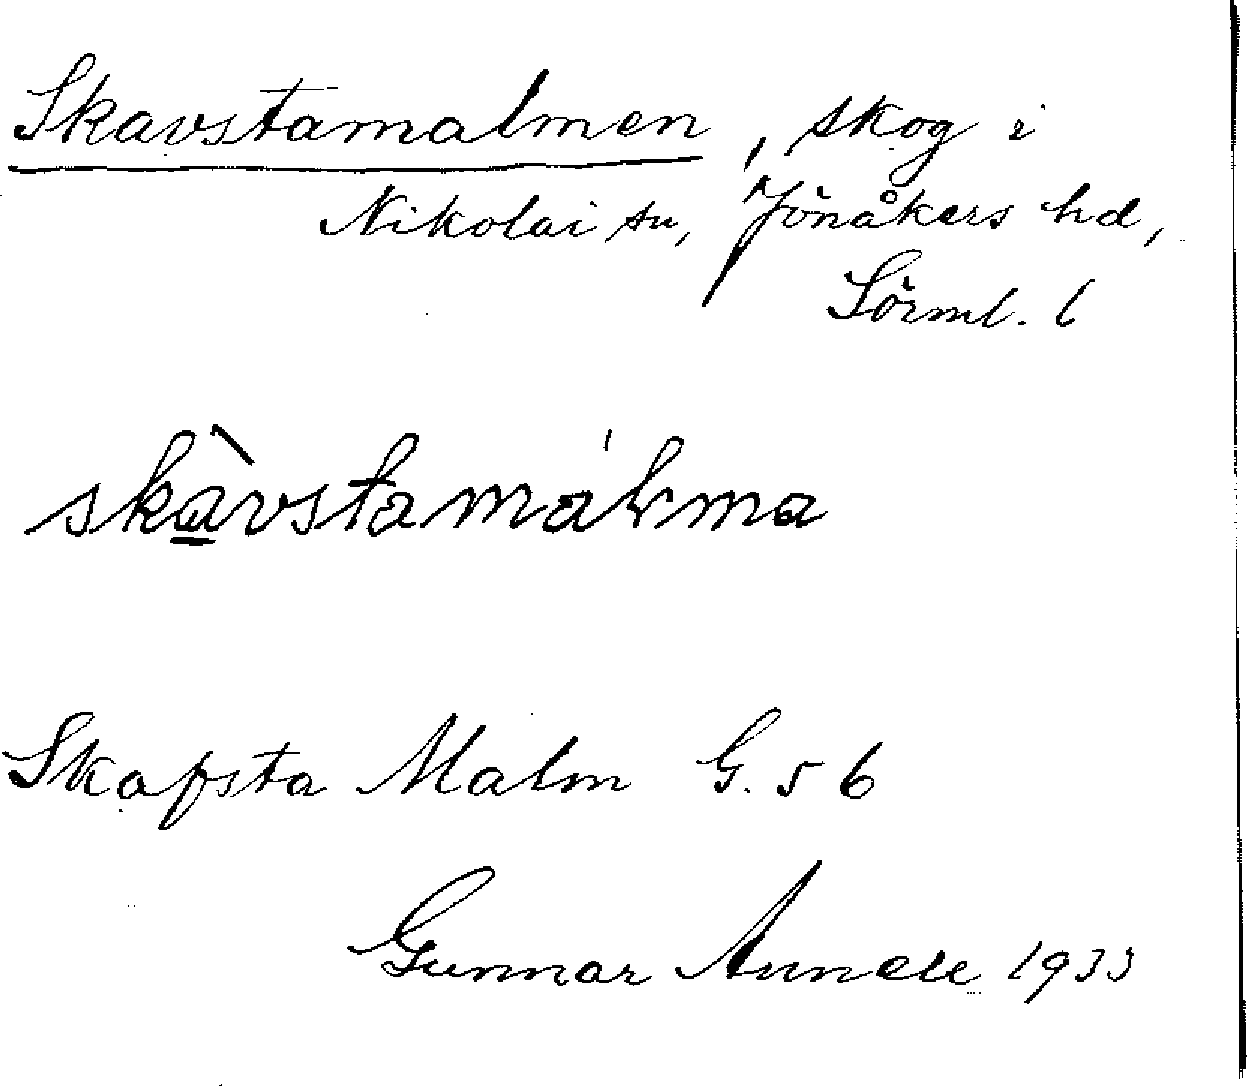 Skavstamalmen, skog i
Nikolai sn, Jönåkers hd,
Sörml. l
skàvstamálma
Skafsta Malm G. 56
Gunnar 1933